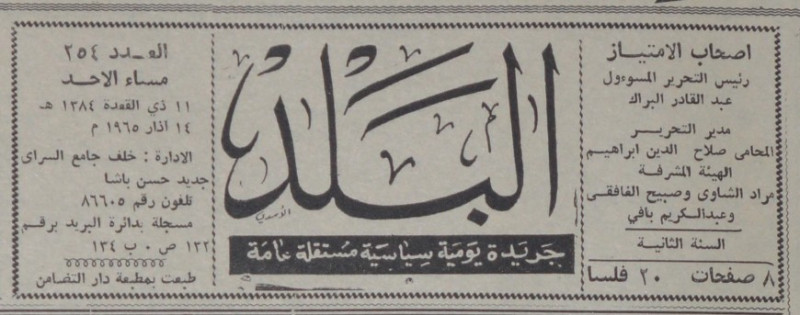 اصحاب الامتياز
رئيس التحرير المسوءول
عبد القادر البراك
مدير التحرير
المحامى صلاح الدين ابراهيم
الهيئة المشرفة
مراد الشاوى وصبيح الغافقى
وعبدالكريم بافي
السنة الثانية
٨ صفحات ٢٠ فلسا
البلد
الأسدي
جريدة يومية سياسية مستقلة عامة
العدد ٢٥٤
مساء الاحد
١١ ذي القعدة ١٣٨٤ هـ
١٤ اذار ١٩٦٥ م
الادارة : خلف جامع السراى
جديد حسن باشا
تلفون رقم ٨٦٦٠٥
مسجلة بدائرة البريد برقم
١٢٢ ص ٠ ب ١٣٤
طبعت بمطبعة دار التضامن